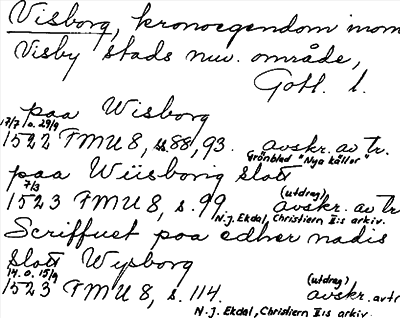 Visborg, kronoegendom inom
Visby stads nuv. område,
Gotl. l.
paa Wisborg
17/7 o. 29/9
1522 FMU 8, ss. 88, 93. avskr. av tr.
Grönblad "Nya källor"
paa Wiisborig Slott
7/3 (utdrag)
1523 FMU 8, s. 99. avskr. av tr
N. J. Ekdal, Christiern II:s arkiv.
Scriffuet paa edher nadis
Slott Wysborg
14. o. 15/9 (utdrag)
1523 FMU 8, s. 114. avskr. av tr
N. J. Ekdal, Christiern II:s arkiv.